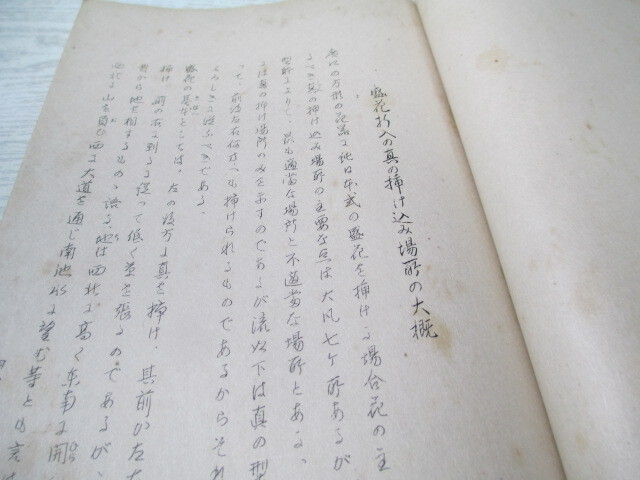 盛花折入の真の挿け込み場所の大概
の方形の花器に地は本式の盛花を挿ける場合花の主
るべき真の挿け込み場所の主要な点は大凡七ケ所あるが
型等によりて、最も適当な場所と不適当な場所とある、
は真の挿け場所のみを示すのであるが流以下は真の型
て、前後左右何れへも挿けられるものであるからそれ
よろしきに従ふべきである。
盛花の基本としては、左の後方に真を挿け、其前か左
挿け、前の右に到るに従って低く葉を張るのであるが、
から地を相するものゝ語る、地は西北に高く東南に開
西北に山を負ひ西に大道を通じ南池水に望む等とも言